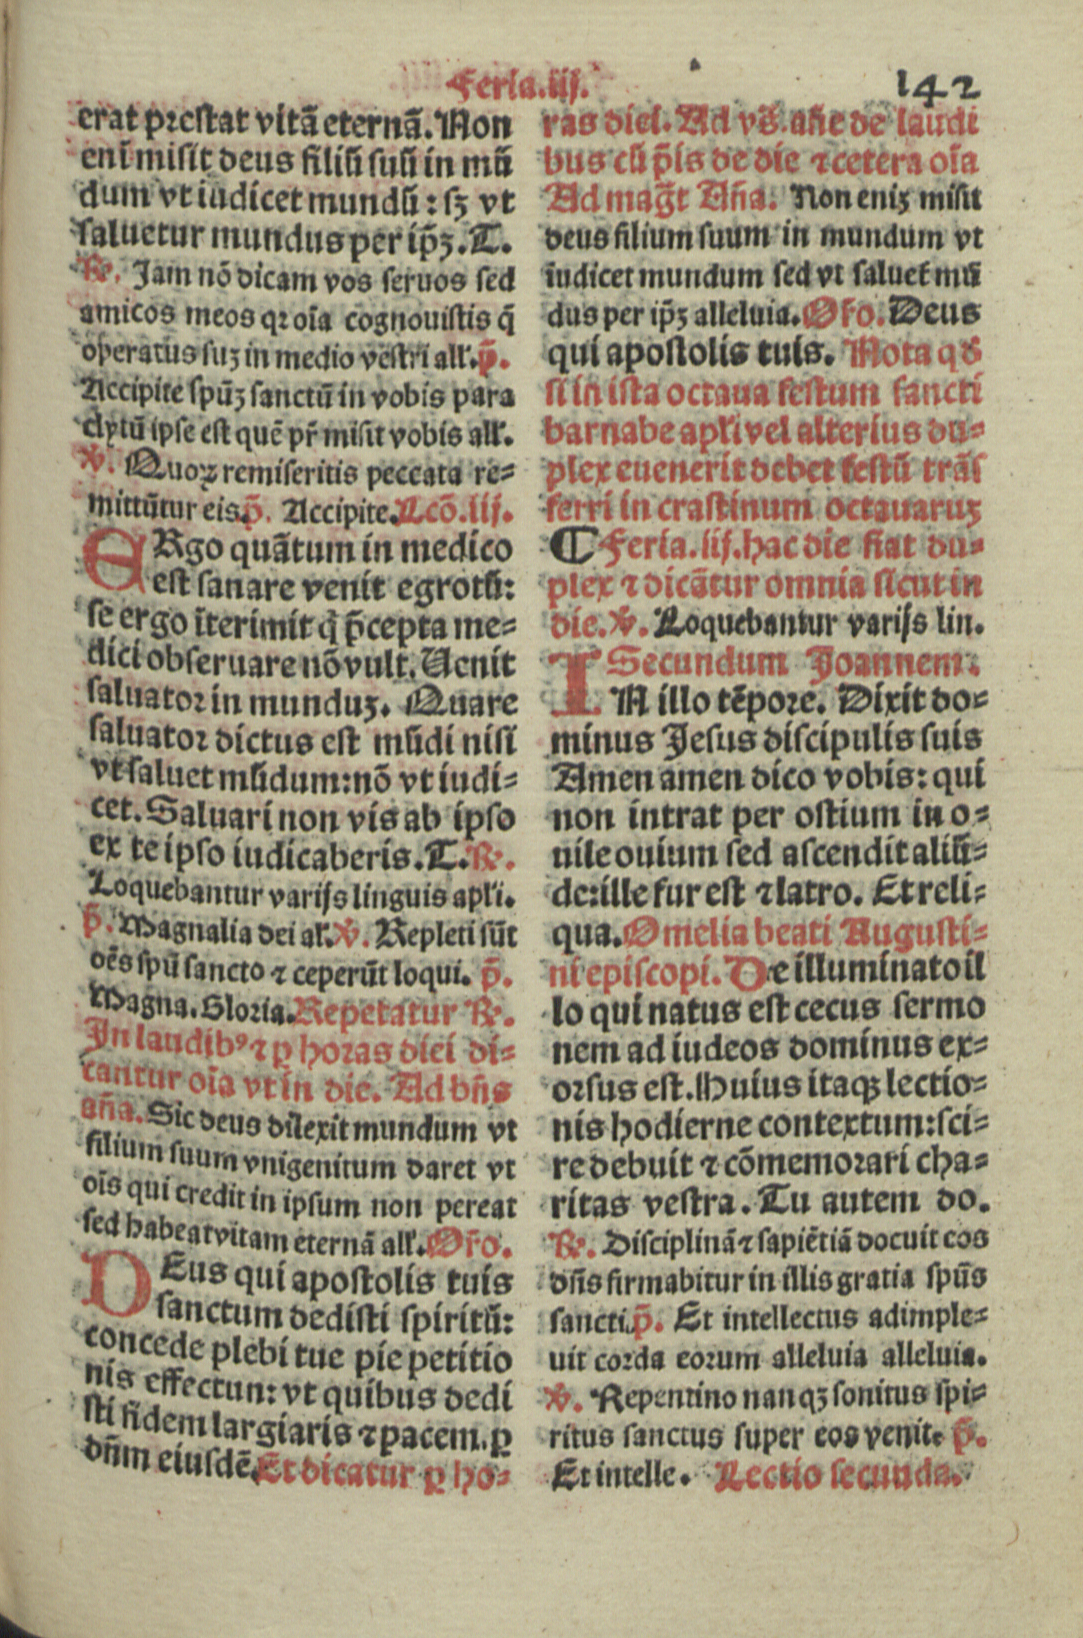 Feria.iij.
142
erat prestat vitã eternã. Non
eni misit deus filiũ suũ in mũ
dum vt iudicet mundũ: sꝫ vt
saluetur mundus per ip̃ꝫ. T.
℟. Jam nõ dicam vos seruos sed
amicos meos qꝛ oĩa cognouistis q̃
operatus suꝫ in medio vestri all'. p̃.
Accipite spũꝫ sanctũ in vobis para
clytũ ipse est quẽ pr̃ misit vobis all'.
℣. Quoꝝ remiseritis peccata re-
mittũtur eis. p̃. Accipite. Lcõ.iij.
ERgo quãtum in medico
est sanare venit egrotũ:
se ergo ĩterimit q̃ p̃cepta me-
dici obseruare nõ vult. Uenit
saluator in munduꝫ. Quare
saluator dictus est mũdi nisi
vt saluet mũdum: nõ vt iudi-
cet. Saluari non vis ab ipso
ex te ipso iudicaberis. T. ℟.
Loquebantur varijs linguis apl'i.
p̃. Magnalia dei al'. ℣. Repleti sũt
oẽs spũ sancto ⁊ ceperũt loqui. p̃.
Magna. Gloria. Repetatur ℟.
In laudibꝰ ⁊ ꝑ horas diei di-
cantur oĩa vt in die. Ad bñs
añã. Sic deus dilexit mundum vt
filium suum vnigenitum daret vt
oĩs qui credit in ipsum non pereat
sed habeat vitam eternã all'. Or̃o.
DEus qui apostolis tuis
sanctum dedisti spiritũ:
concede plebi tue pie petitio
nis effectun: vt quibus dedi
sti fidem largiaris ⁊ pacem. ꝑ
dñm eiusdẽ. Et dicatur ꝑ ho-
ras diei. Ad vs̃. añe de laudi
bus cũ p̃ls de die ⁊ cetera oĩa
Ad mag̃t Añã. Non eniꝫ misit
deus filium suum in mundum vt
iudicet mundum sed vt saluet̃ mũ
dus per ip̃ꝫ alleluia. Or̃o. Deus
qui apostolis tuis. Nota qð
si in ista octaua festum sancti
barnabe apl'i vel alterius du-
plex euenerit debet festũ trãs
ferri in crastinum octauaruꝫ
¶ Feria.iij. hac die fiat du-
plex ⁊ dicãtur omnia sicut in
die. ℣. Loquebantur varijs lin.
Secundum Joannem.
IN illo tẽpore. Dixit do-
minus Jesus discipulis suis
Amen amen dico vobis: qui
non intrat per ostium in o-
uile ouium sed ascendit aliũ-
de: ille fur est ⁊ latro. Et reli-
qua. Omelia beati Augusti-
ni episcopi. De illuminato il
lo qui natus est cecus sermo
nem ad iudeos dominus ex-
orsus est. Huius itaqꝫ lectio-
nis hodierne contextum: sci-
re debuit ⁊ cõmemorari cha-
ritas vestra. Tu autem do.
℟. Disciplinã ⁊ sapiẽtiã docuit eos
dñs firmabitur in illis gratia spũs
sancti. p̃. Et intellectus adimple-
uit corda eorum alleluia alleluia.
℣. Repentino nanqꝫ sonitus spi-
ritus sanctus super eos venit. p̃.
Et intelle. Lectio secunda.